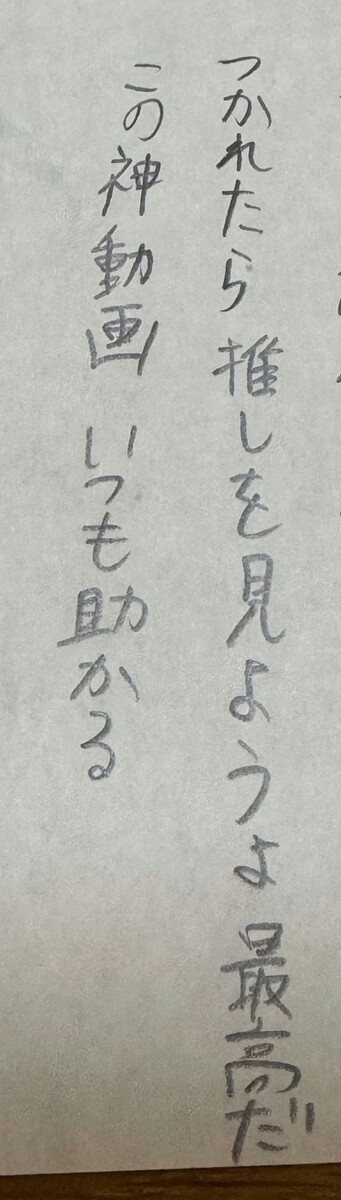 つかれたら 推しを見ようよ 最高だ
この神動画 いつも助かる